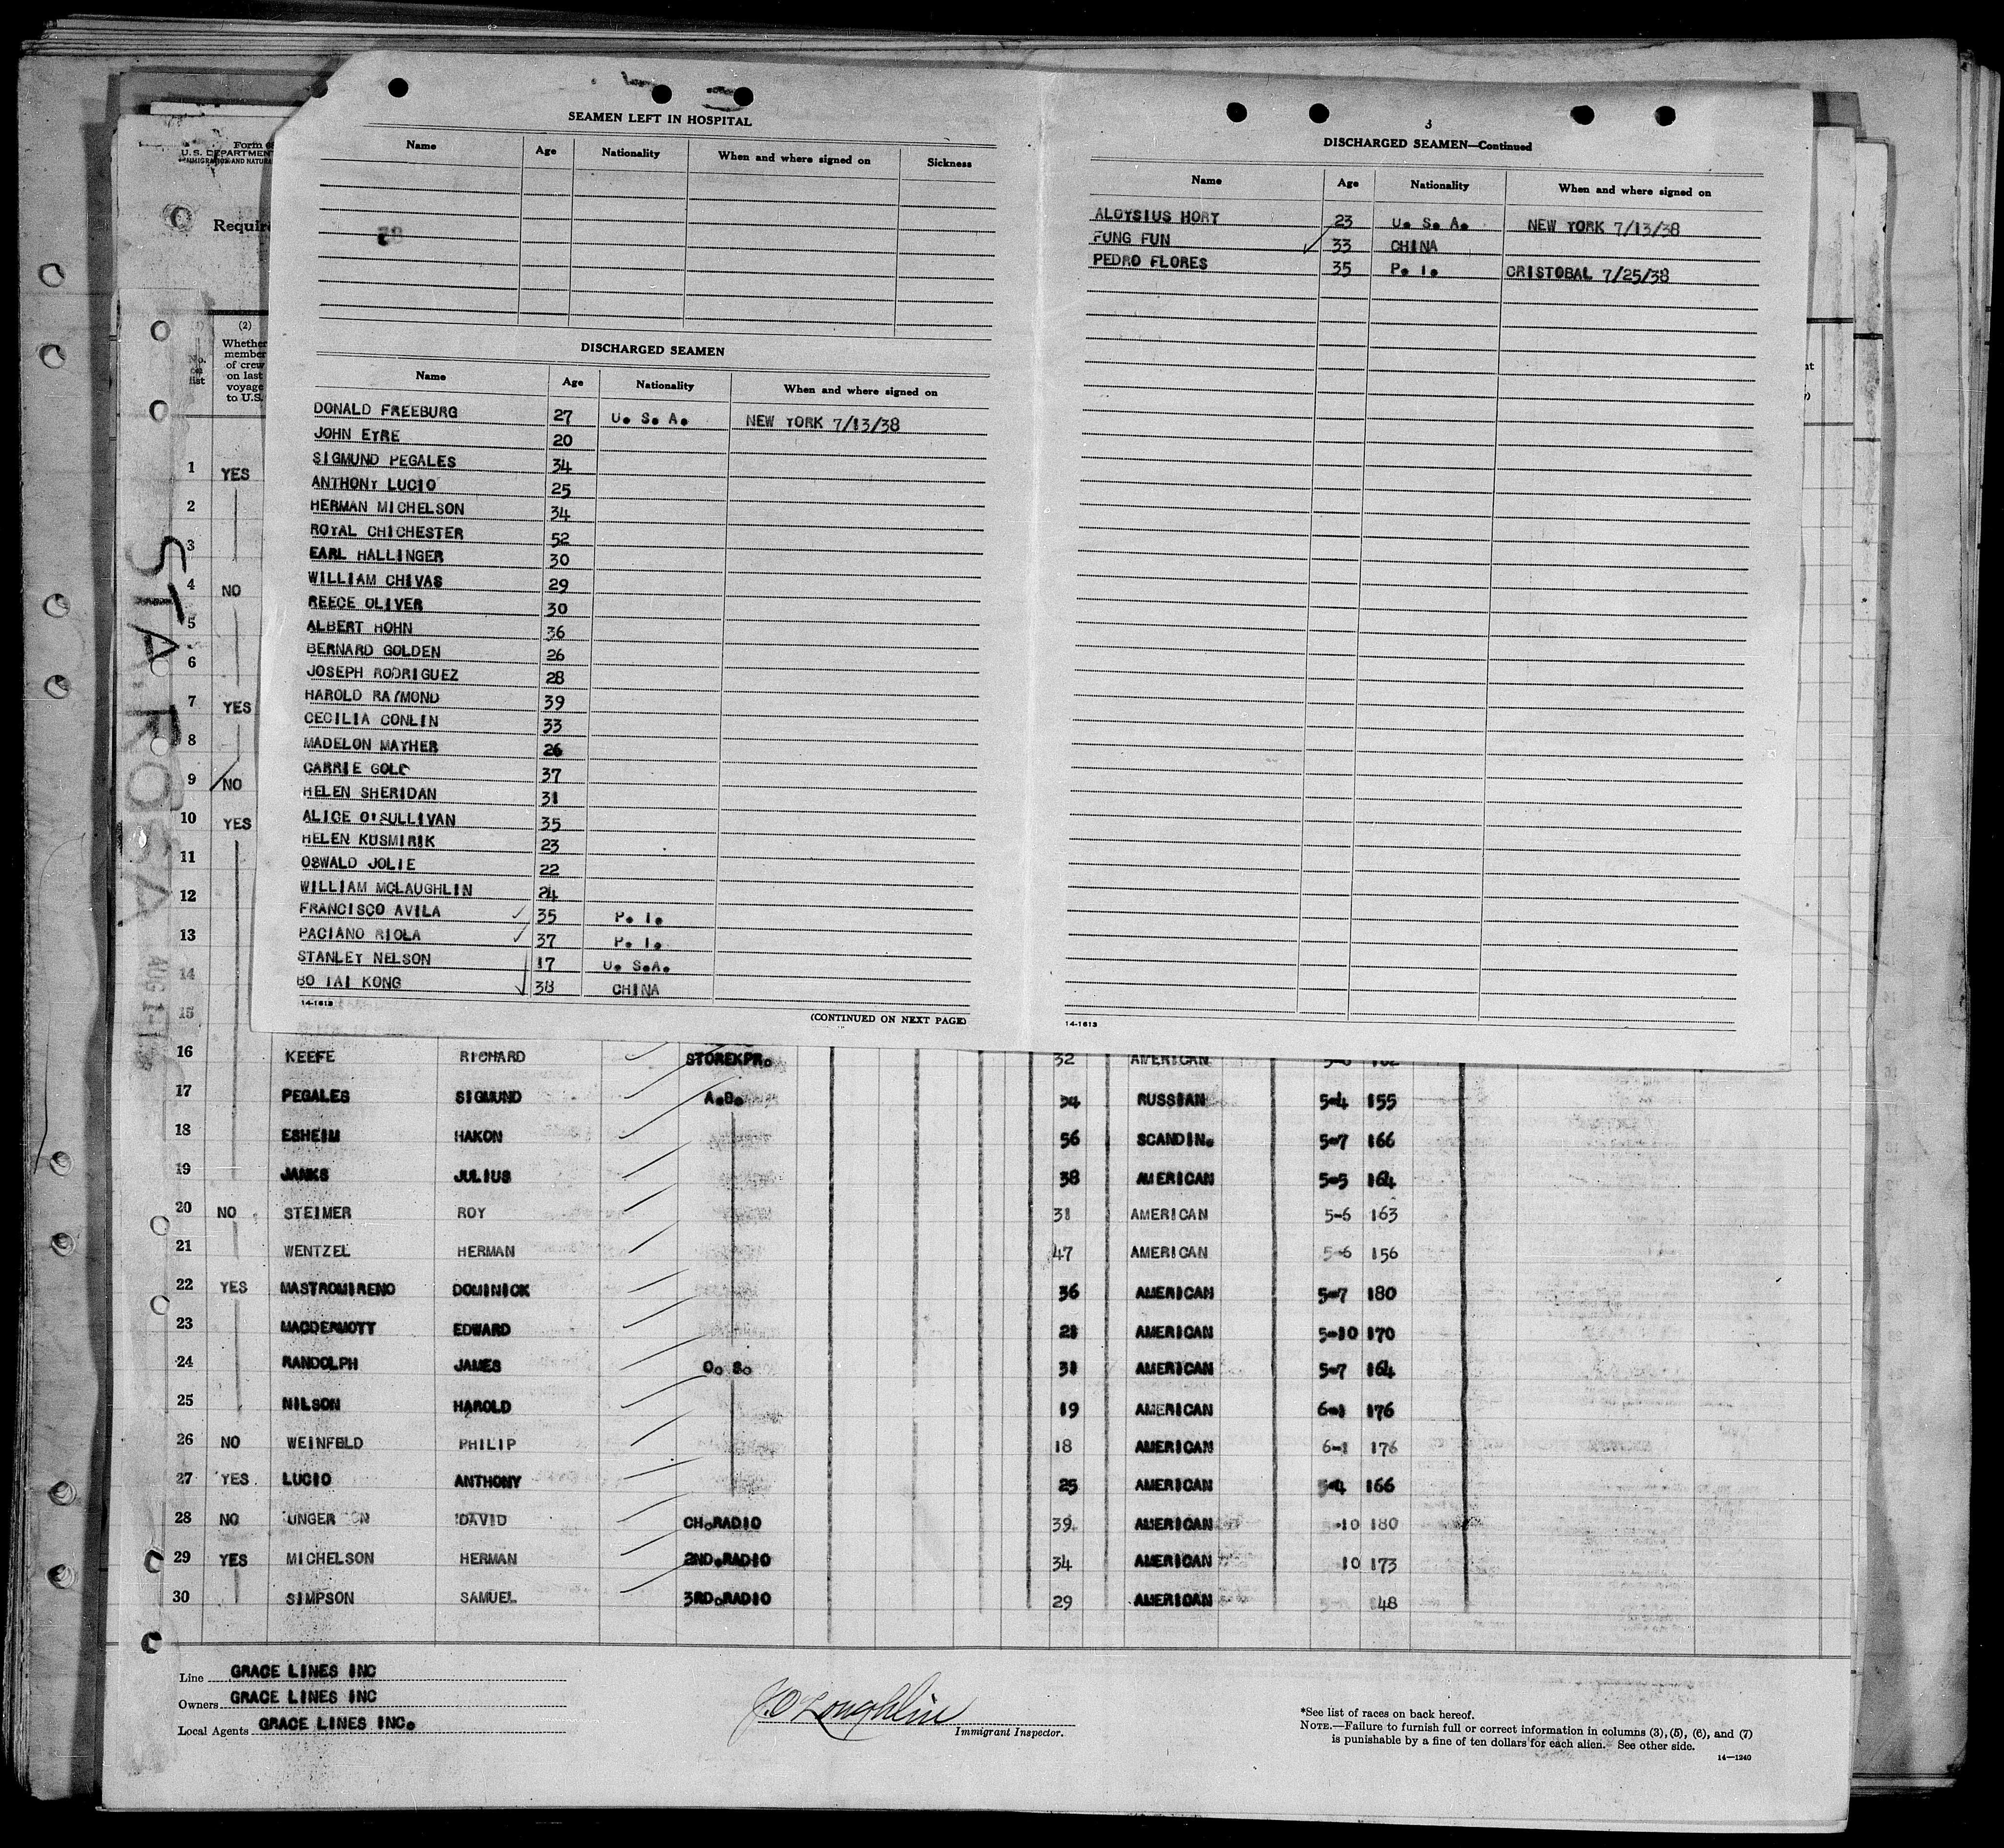 SEAMEN LEFT IN HOSPITAL
Name Age Nationality When and where signed on Sickness
DISCHARGED SEAMEN
Name Age Nationality When and where signed on
DONALD FREEBURG 27 U. S. A. NEW YORK 7/13/38
JOHN EYRE 20
SIGMUND PEGALES 34
ANTHONY LUCIO 25
HERMAN MICHELSON 34
ROYAL CHICHESTER 52
EARL HALLINGER 30
WILLIAM CHIVAS 29
REECE OLIVER 30
ALBERT HOHN 36
BERNARD GOLDEN 26
JOSEPH RODRIGUEZ 28
HAROLD RAYMOND 39
CECILIA CONLIN 33
MADELON MAYHER 26
CARRIE GOLD 37
HELEN SHERIDAN 31
ALICE O'SULLIVAN 35
HELEN KUSMIRIK 23
OSWALD JOLIE 22
WILLIAM MCLAUGHLIN 24
FRANCISCO AVILA 35 P. I.
PACIANO RIOLA 37 P. I.
STANLEY NELSON 17 U. S.A.
BO TAI KONG 38 CHINA
14-1613
(CONTINUED ON NEXT PAGE)
3
DISCHARGED SEAMEN—Continued
Name Age Nationality When and where signed on
ALOYSIUS HORY 23 U. S. A. NEW YORK 7/13/38
FUNG FUN 33 CHINA
PEDRO FLORES 35 P. I. CRISTOBAL 7/25/38
14-1613
Form
U. S. DEPARTMENT
IMMIGRATION AND NATURA
Require
No. on list
(2)
Whether
member
of crew
on last
voyage
to U.S.
STA. ROSA
AUG 1-1
1 YES
2
3
4 NO
5
6
7 YES
8
9 NO
10 YES
11
12
13
14
15
16 KEEFE RICHARD STOREKPR. 32 AMERICAN
17 PEGALES SIGMUND A.B. 34 RUSSIAN 5-4 155
18 ESHEIM HAKON 56 SCANDIN. 5-7 166
19 JANKS JULIUS 38 AMERICAN 5-5 164
20 NO STEIMER ROY 31 AMERICAN 5-6 163
21 WENTZEL HERMAN 47 AMERICAN 5-6 156
22 YES MASTROMIRENO DOMINICK 36 AMERICAN 5-7 180
23 MACDERMOTT EDWARD 21 AMERICAN 5-10 170
24 RANDOLPH JAMES O. S. 31 AMERICAN 5-7 164
25 NILSON HAROLD 19 AMERICAN 6-1 176
26 NO WEINFELD PHILIP 18 AMERICAN 6-1 176
27 YES LUCIO ANTHONY 25 AMERICAN 5-4 166
28 NO UNGER DAVID CH.RADIO 39 AMERICAN -10 180
29 YES MICHELSON HERMAN 2ND.RADIO 34 AMERICAN 10 173
30 SIMPSON SAMUEL 3RD.RADIO 29 AMERICAN 148
Line GRACE LINES INC
Owners GRACE LINES INC
Local Agents GRACE LINES INC.
J. O'Loughlin
Immigrant Inspector.
*See list of races on back hereof.
NOTE.—Failure to furnish full or correct information in columns (3), (5), (6), and (7)
is punishable by a fine of ten dollars for each alien. See other side.
14—1240